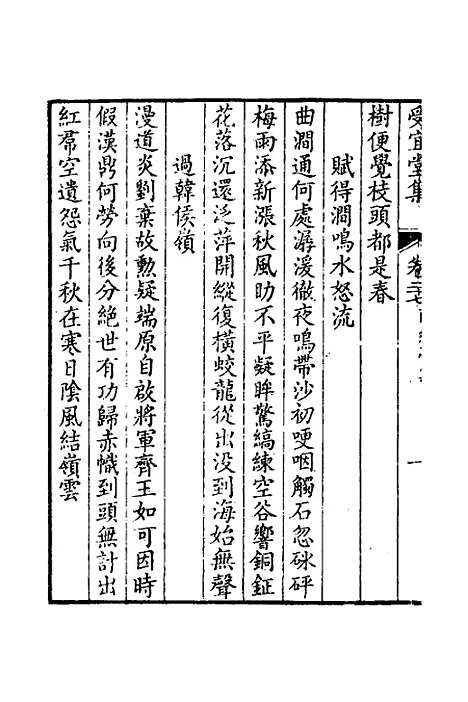 受宜堂集
卷二十七
一
樹便覺枝頭都是春
賦得澗鳴水怒流
曲澗通何處潺湲徹夜鳴帶沙初哽咽觸石忽砯砰
梅雨添新漲秋風助不平凝眸驚縞練空谷響銅鉦
花落沉還泛萍開縱復橫蛟龍從出没到海始無聲
過韓侯嶺
漫道炎劉棄故勲疑端原自啟將軍齊王如可因時
假漢鼎何勞向後分絕世有功歸赤幟到頭無計出
紅帬空遺怨氣千秋在寒日陰風結嶺雲